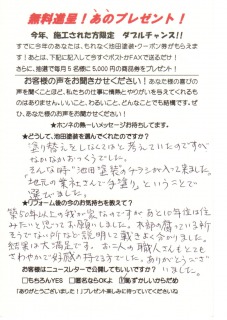 無料進呈！あのプレゼント！
今年、施工された方限定　ダブルチャンス!!
すでに今年のあなたは、もれなく池田塗装・クーポン券がもらえ
ます！あとは、下記に今の気持ちを書いて今すぐポストかFAXで送るだけ！
さらに、抽選で毎月5名様に5,000円の商品券をプレゼント！
お客様の声をお聞きかせください！あなた様の喜びの
声を聞くことほど、私たちの仕事に情熱とやりがいを与えてくれるも
のはありません。いいこと、わるいこと、どんなことでも結構です。ぜ
ひ、あなた様のお声をお聞かせください。
★ホンネの熱ーいメッセージお待ちしてます。
★どうして、池田塗装を選んでくれたのですか？
塗り替えをしなくてはと考えていたのですが
なかなかおっくうでした。
そんな時“池田塗装のチラシが入って来ました。
“地元の業社さんで手塗り”ということで
選びました。
★リフォーム後の今のお気持ちを教えて？
築50年以上の我が家なのですがあと10年位は住
みたいと思ってお願いしました。木部の腐っている所
そうでない所など説明して戴きよく分かりました。
結果は大満足です。お二人の職人さんもとても
さわやかで好感の持てる方でした。ありがとうござ
いました。
お客様はニュースレターで公開してもいいですか？
□もちろんYES　□匿名ならOKよ　□恥ずかしいからだめ
「ありがとうございました！」プレゼント楽しみに待っていてくださいね